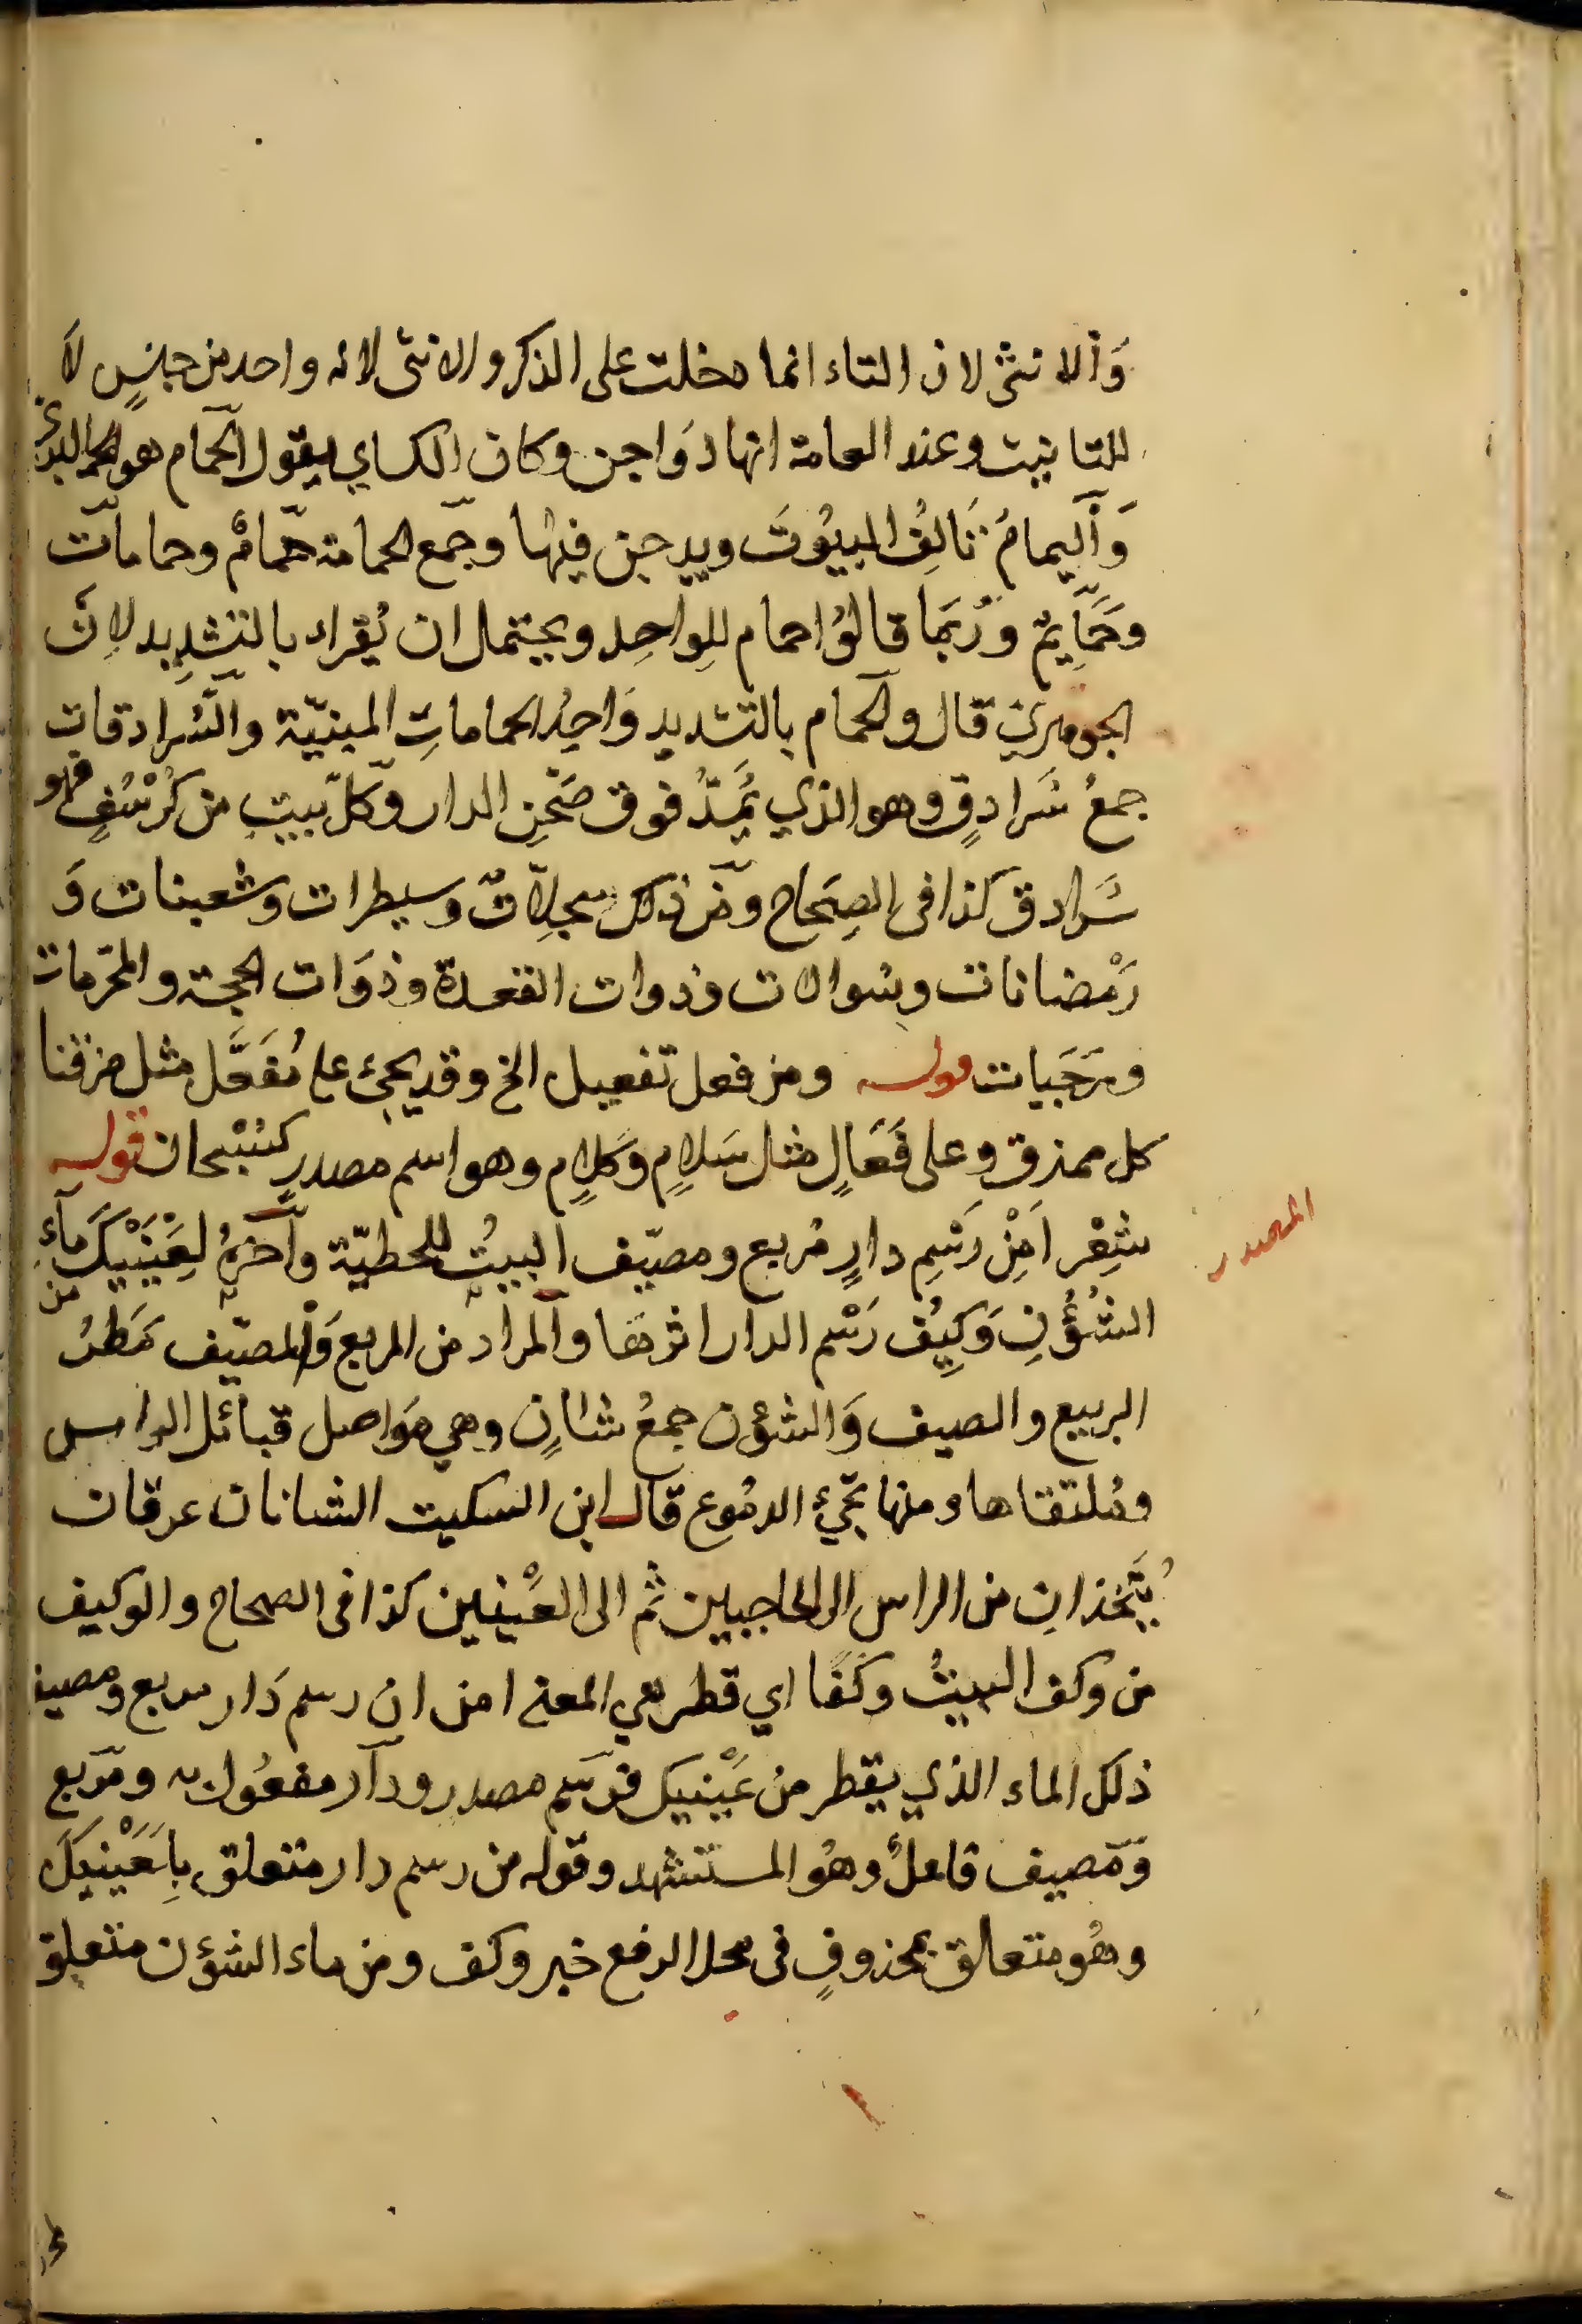 وَالانثى لان التاء انما دخلت على الذكر والانثى لانه واحد من جنسٍ لاَ
للتانيث وعند العامة انها دَواجن وكان الكساي يقول الحمام هو البري
وَاليمامُ تَالِفُ البيُوتَ ويدجن فيها وجمع الحمامة حمامٌ وحمامات
وحَمَايِمُ ورُبَمَا قالوُا حمام للِواحِد ويحتمل ان يُقراء بالتشديد لاِنَّ
الجوهري قال والحمام بالتشديد وَاحِدُ الحماماتِ المبنيّة والسُّرادقات
جمعُ سُرادقٍ وهو الذي يُمَدُّ فوق صَحْنِ الدار وكلّ بيتٍ من كُرْسُفٍ فهو
سُرادق كذا في الصِحَاح ومن ذلك سجِلاّتٌ وسيطرات وشعبنات وَ
رَمْضانات وشوالات وذوات القعدة وذوَات الحجة والمحرّمات
ورَجَبيات قوله ومن فعل تفعيل الخ وقد يجئ على مُفَعَّل مثل مزقنا
كل ممزق وعلى فَعَالٍ مثل سَلامٍ وكَلامٍ وهو اسم مصدرٍ كسُبْحان قوله
المصدر
شِعْر اَمِنْ رَسْمِ دارٍ مُربع ومصيّف البيتُ للحطيّة وآخرهُ لِعَيْنَيْكَ من مآءِ
الشُؤُنِ وَكِيُف رَسْم الدار اثرها والمراد من المربع وَالمصيّف مَطَرُ
الربيع والصيف وَالشؤن جمعُ شانٍ وهي مَواصل قبائل الراس
ومُلتقاها ومنها تجيُ الدمُوع قال ابن السكيت الشانان عرقان
يُتَّخذانِ من الراس الى الحاجبين ثم الى العَيْنين كذا في الصحاح والوكيف
من وكف البيتُ وكفًا اي قطر يعي المعنى امن ان رسم دَار مربع ومصيف
ذلك الماء الذي يقطر من عَيْنيك فرَسم مصدر ودآر مفعُوله ومربع
وَمصيف فاعلٌ وهُو المستشهد وقوله من رسم دار متعلق بِعَيْنيكَ
وهُو متعلق بمحذوفٍ في محل الرفع خبر وكف ومن ماء الشؤن متعلق